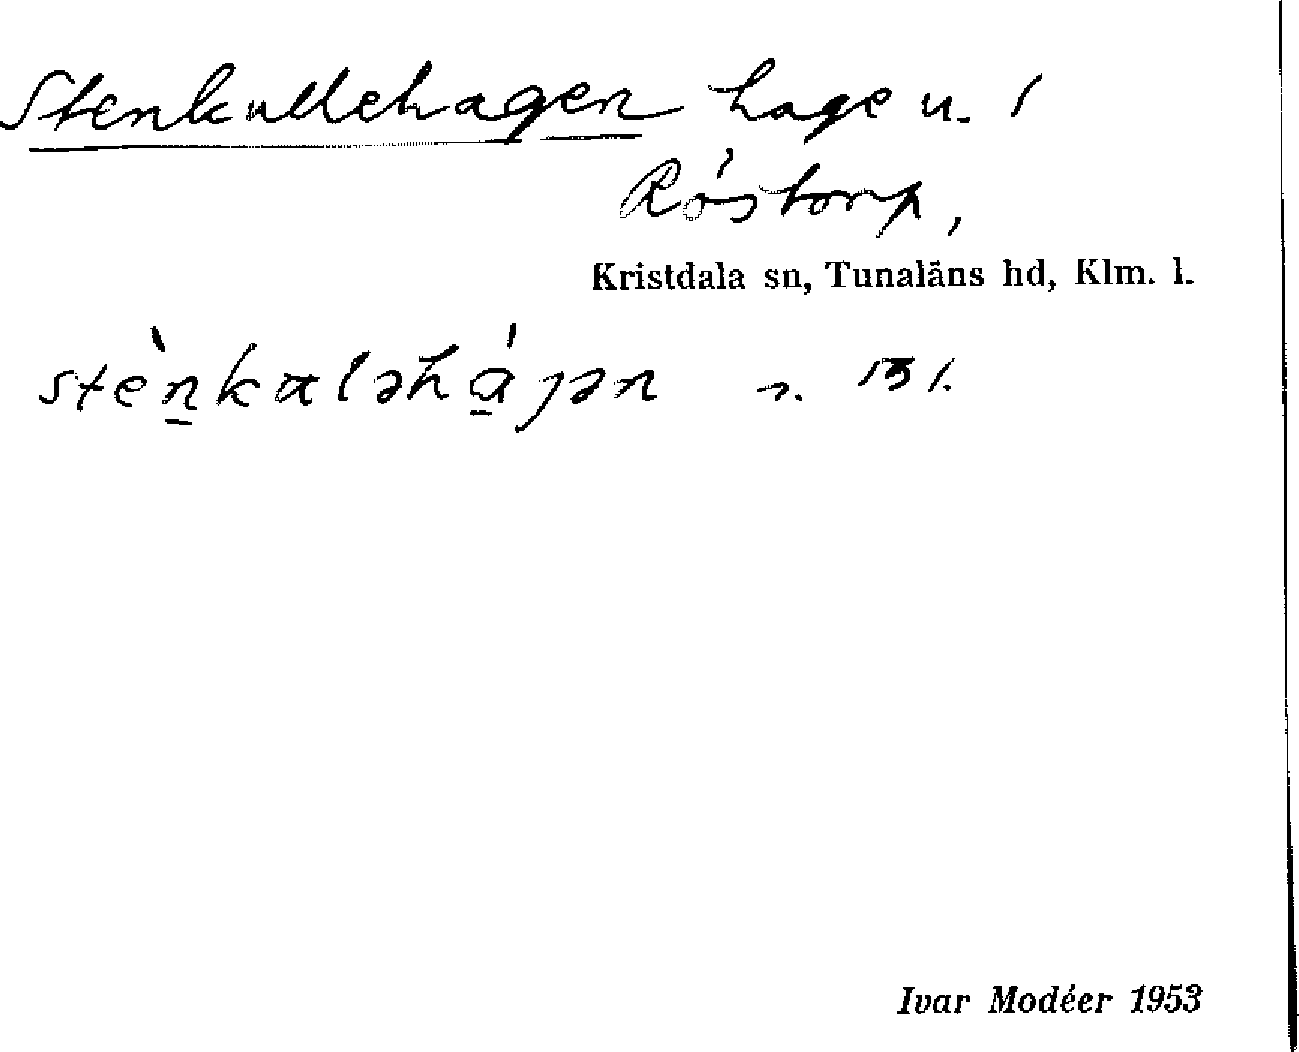 Stenkullehagen hage u. 1
Röstorp,
Kristdala sn, Tunaläns hd, Klm. l.
stènkaləhájən s. 131.
Ivar Modéer 1953